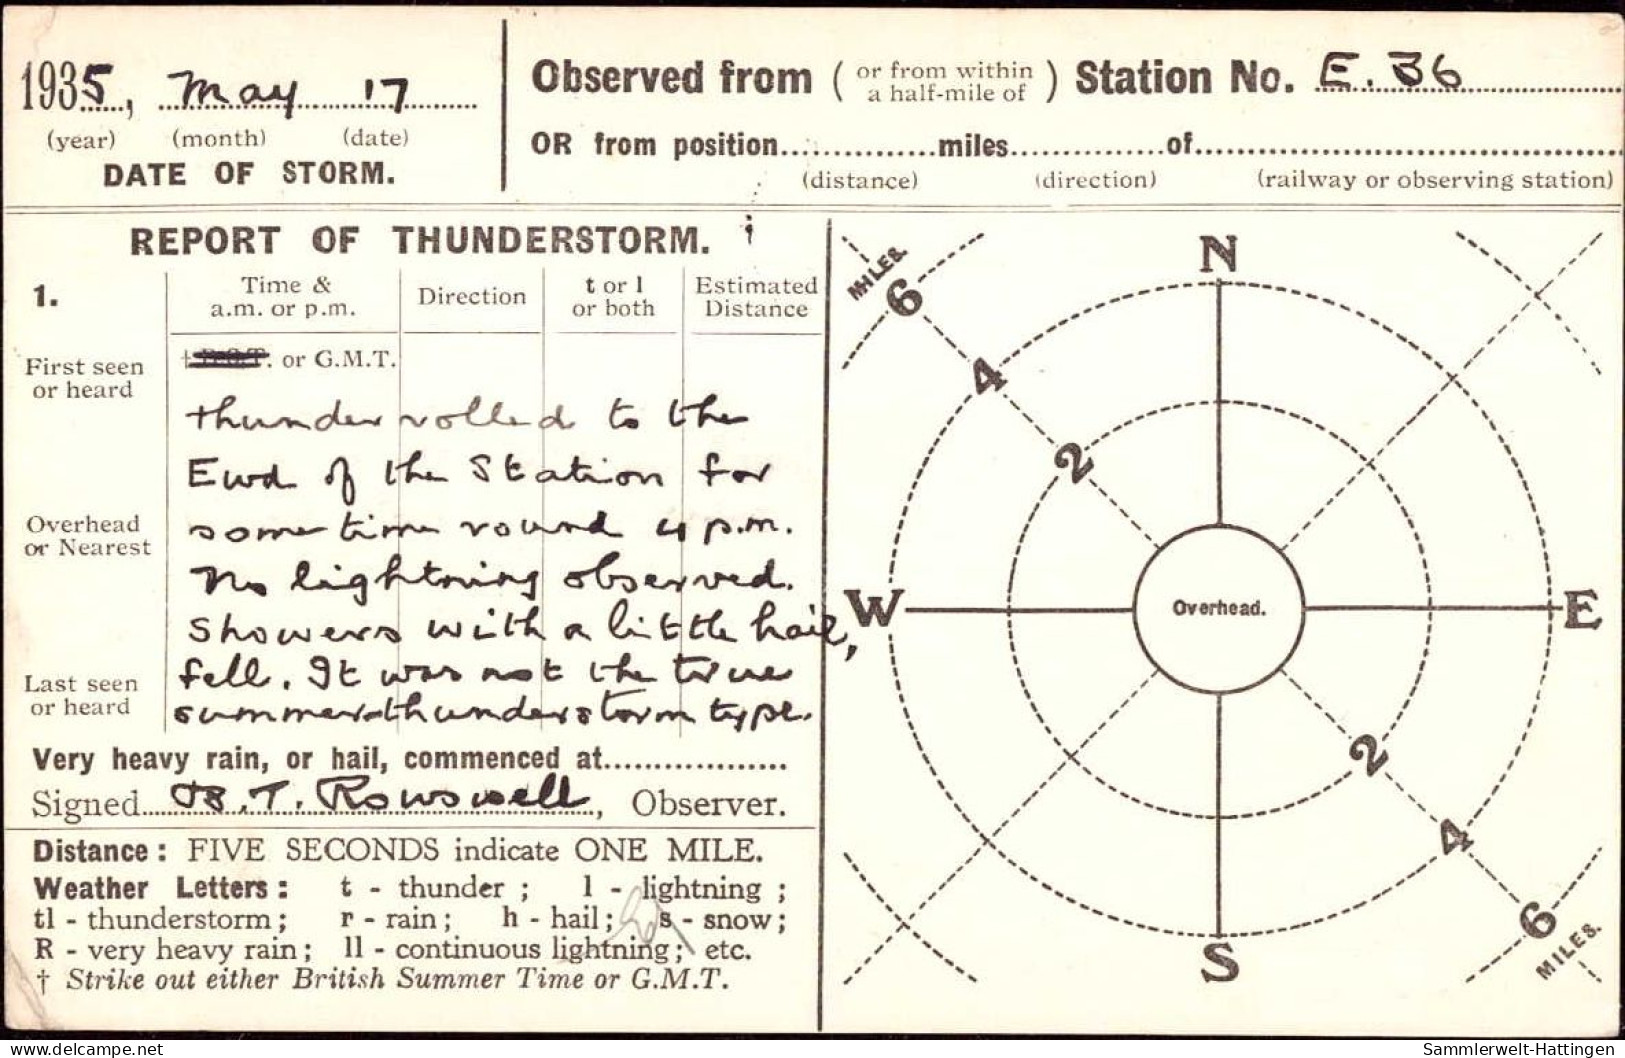 1935, May 17
(year) (month) (date)
DATE OF STORM.
Observed from ( or from within a half-mile of ) Station No. E. 36
OR from position..............miles...............of..........................................
(distance) (direction) (railway or observing station)
REPORT OF THUNDERSTORM.
1.
Time & a.m. or p.m.
Direction
t or l or both
Estimated Distance
First seen or heard
† B.S.T. or G.M.T.
thunder rolled to the
Ewd of the Station for
some time round 4 p.m.
Overhead or Nearest
No lightning observed.
Showers with a little hail,
fell. It was not the true
Last seen or heard
summer-thunderstorm type.
Very heavy rain, or hail, commenced at..................
Signed B.T. Rowswell, Observer.
Distance : FIVE SECONDS indicate ONE MILE.
Weather Letters : t - thunder ; l - lightning ;
tl - thunderstorm ; r - rain ; h - hail ; s - snow ;
R - very heavy rain ; ll - continuous lightning ; etc.
† Strike out either British Summer Time or G.M.T.
MILES.
6
4
2
N
W
Overhead.
E
2
4
6
MILES.
S
www.delcampe.net
Sammlerwelt-Hattingen